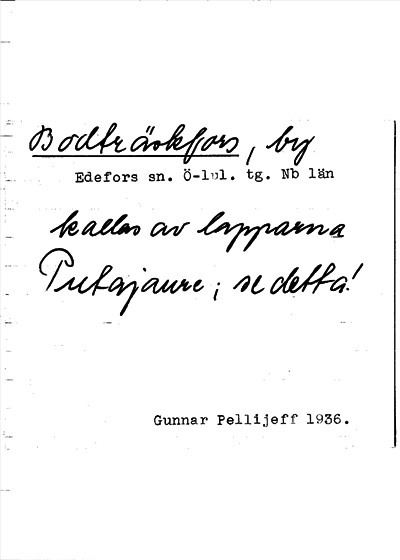 Bodträskfors, by
Edefors sn. Ö-lul. tg. Nb län
kallas av lapparna
Putajaure; se detta!
Gunnar Pellijeff 1936.